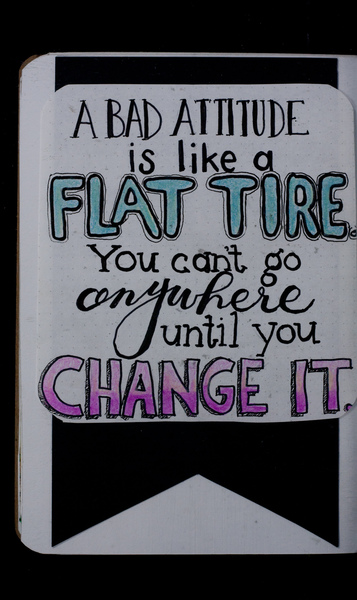 A BAD ATTITUDE
is like a
FLAT TIRE.
You can't go
anywhere
until you
CHANGE IT.